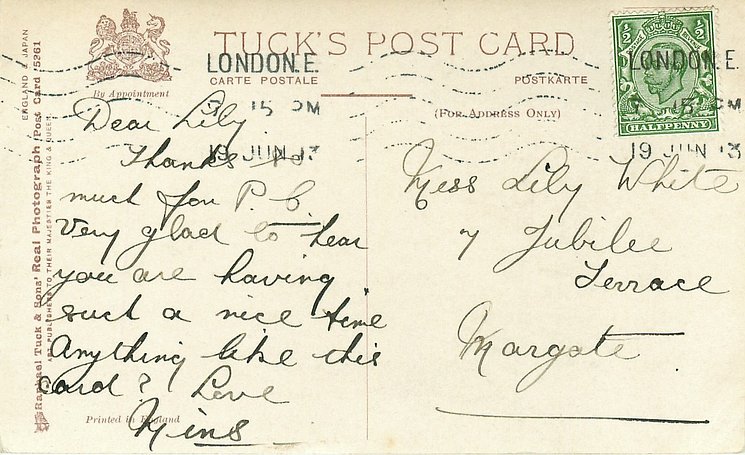 TUCK'S POST CARD
CARTE POSTALE
POSTKARTE
By Appointment
(FOR ADDRESS ONLY)
LONDON.E.
3 15 PM
19 JUN 13
LONDON.E
15 PM
19 JUN 13
½ ½
HALFPENNY
Dear Lily
Thanks so
much for P.C.
Very glad to hear
you are having
such a nice time
Anything like this
card? Love
Nins
Miss Lily White
7 Jubilee
Terrace
Margate
Printed in England
Raphael Tuck & Sons' Real Photograph Post Card 5261
ART PUBLISHERS TO THEIR MAJESTIES THE KING & QUEEN.
ENGLAND & JAPAN